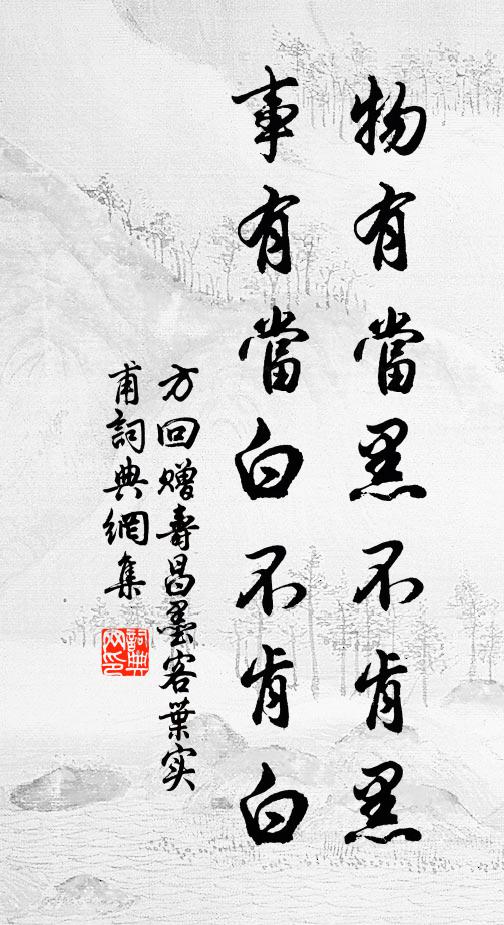 物有當黑不肯黑
事有當白不肯白
方回赠壽昌墨客葉实
甫詞典網集
詞典网印